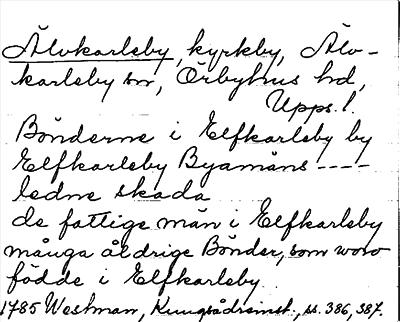 Älvkarleby, kyrkby, Älv-
karleby sn, Örbyhus hd,
Upps. l.
Bönderne i Elfkarleby by
Elfkarleby Byamäns ----
ledne skada
de fattige män i Elfkarleby
många åldrige Bönder, som woro
födde i Elfkarleby.
1785 Westman, Kungsådreinst., ss. 386, 387.